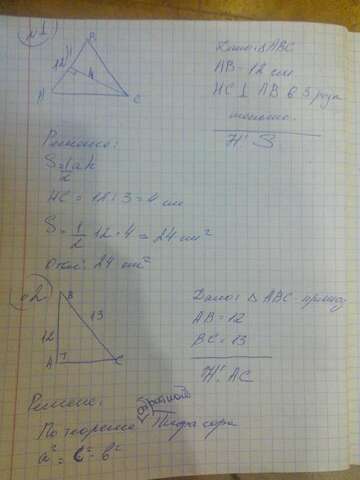 №1
B
12 H
4
A C
Дано: ΔABC
AB - 12 см
HC ⊥ AB в 3 раза
меньше.
Н: S
Решение:
S = 1/2 ah
HC = 12 : 3 = 4 см
S = 1/2 12 · 4 = 24 см²
Ответ: 24 см²
№2.
B
13
12
A C
Дано: Δ ABC - прямоуг
AB = 12
BC = 13
Н: AC
Решение:
обратной
По теореме Пифагора
a² = c² - b²